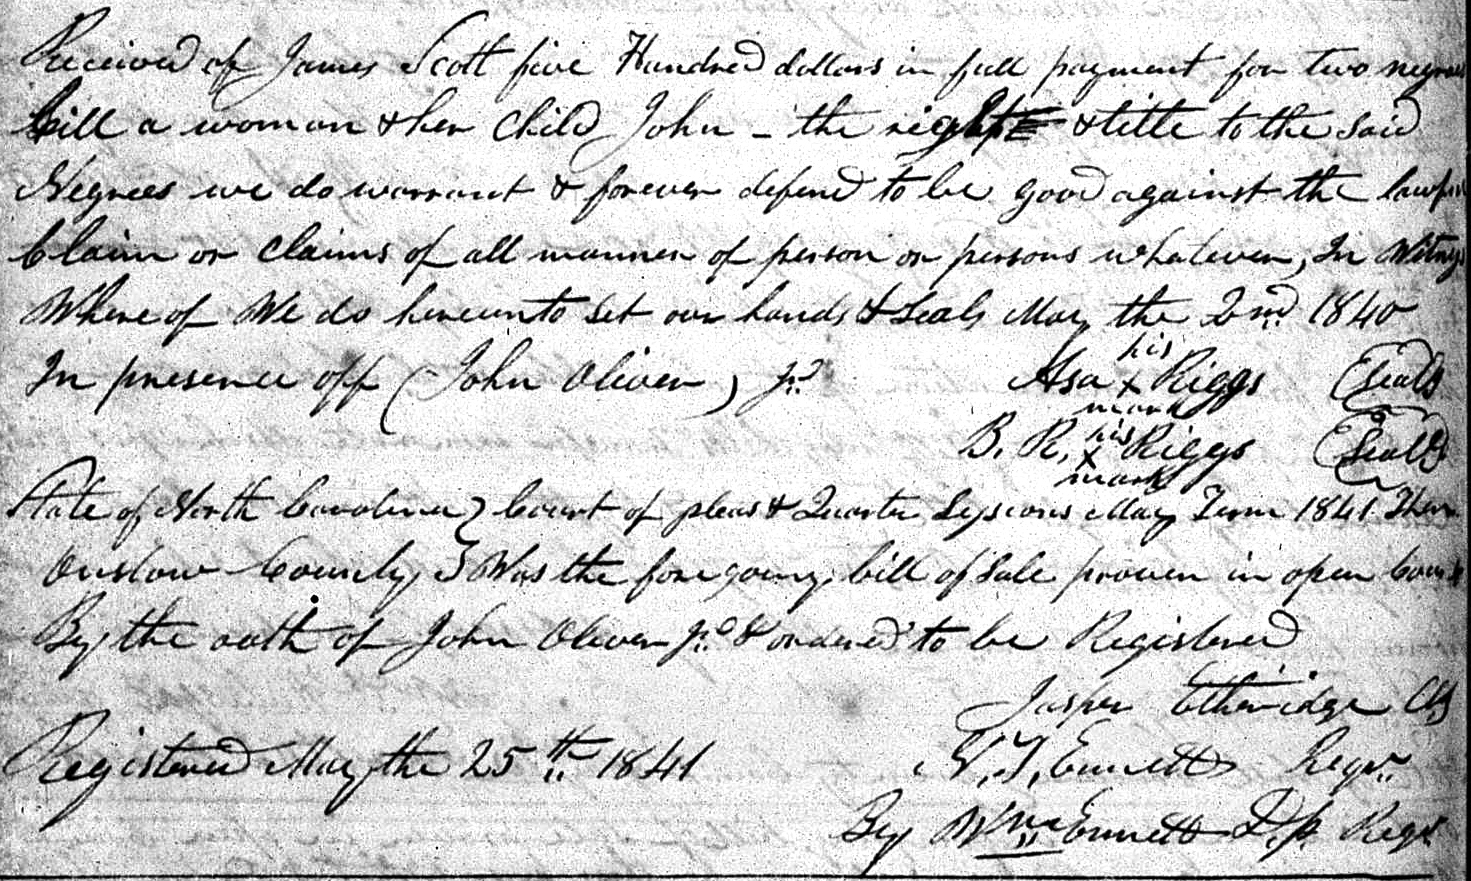 Received of James Scott five Hundred dollars in full payment for two negroes
Cill a woman & her Child John - the right & title to the said
Negroes we do warrant & forever defend to be good against the lawful
Claim or claims of all manner of person or persons whatever, In Witness
Where of We do hereunto set our hands & Seals May the 2nd 1840
In presence off (John Oliver) Jr. Asa his x mark Riggs (Seal)
B. R. his x mark Riggs (Seal)
State of North Carolina } Court of pleas & Quarter Sessions May Term 1841 Then
Onslow County } Was the foregoing bill of Sale proven in open Court
By the oath of John Oliver Jr. & ordered to be Registered
Jasper Etheridge Clk
Registered May the 25th 1841 N. T. Ennett Regr.
By Wm Ennett D.p. Regr